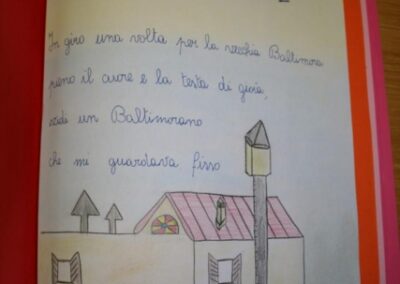 In giro una volta per la vecchia Baltimora
pieno il cuore e la testa di gioia,
vidi un Baltimorano
che mi guardava fisso